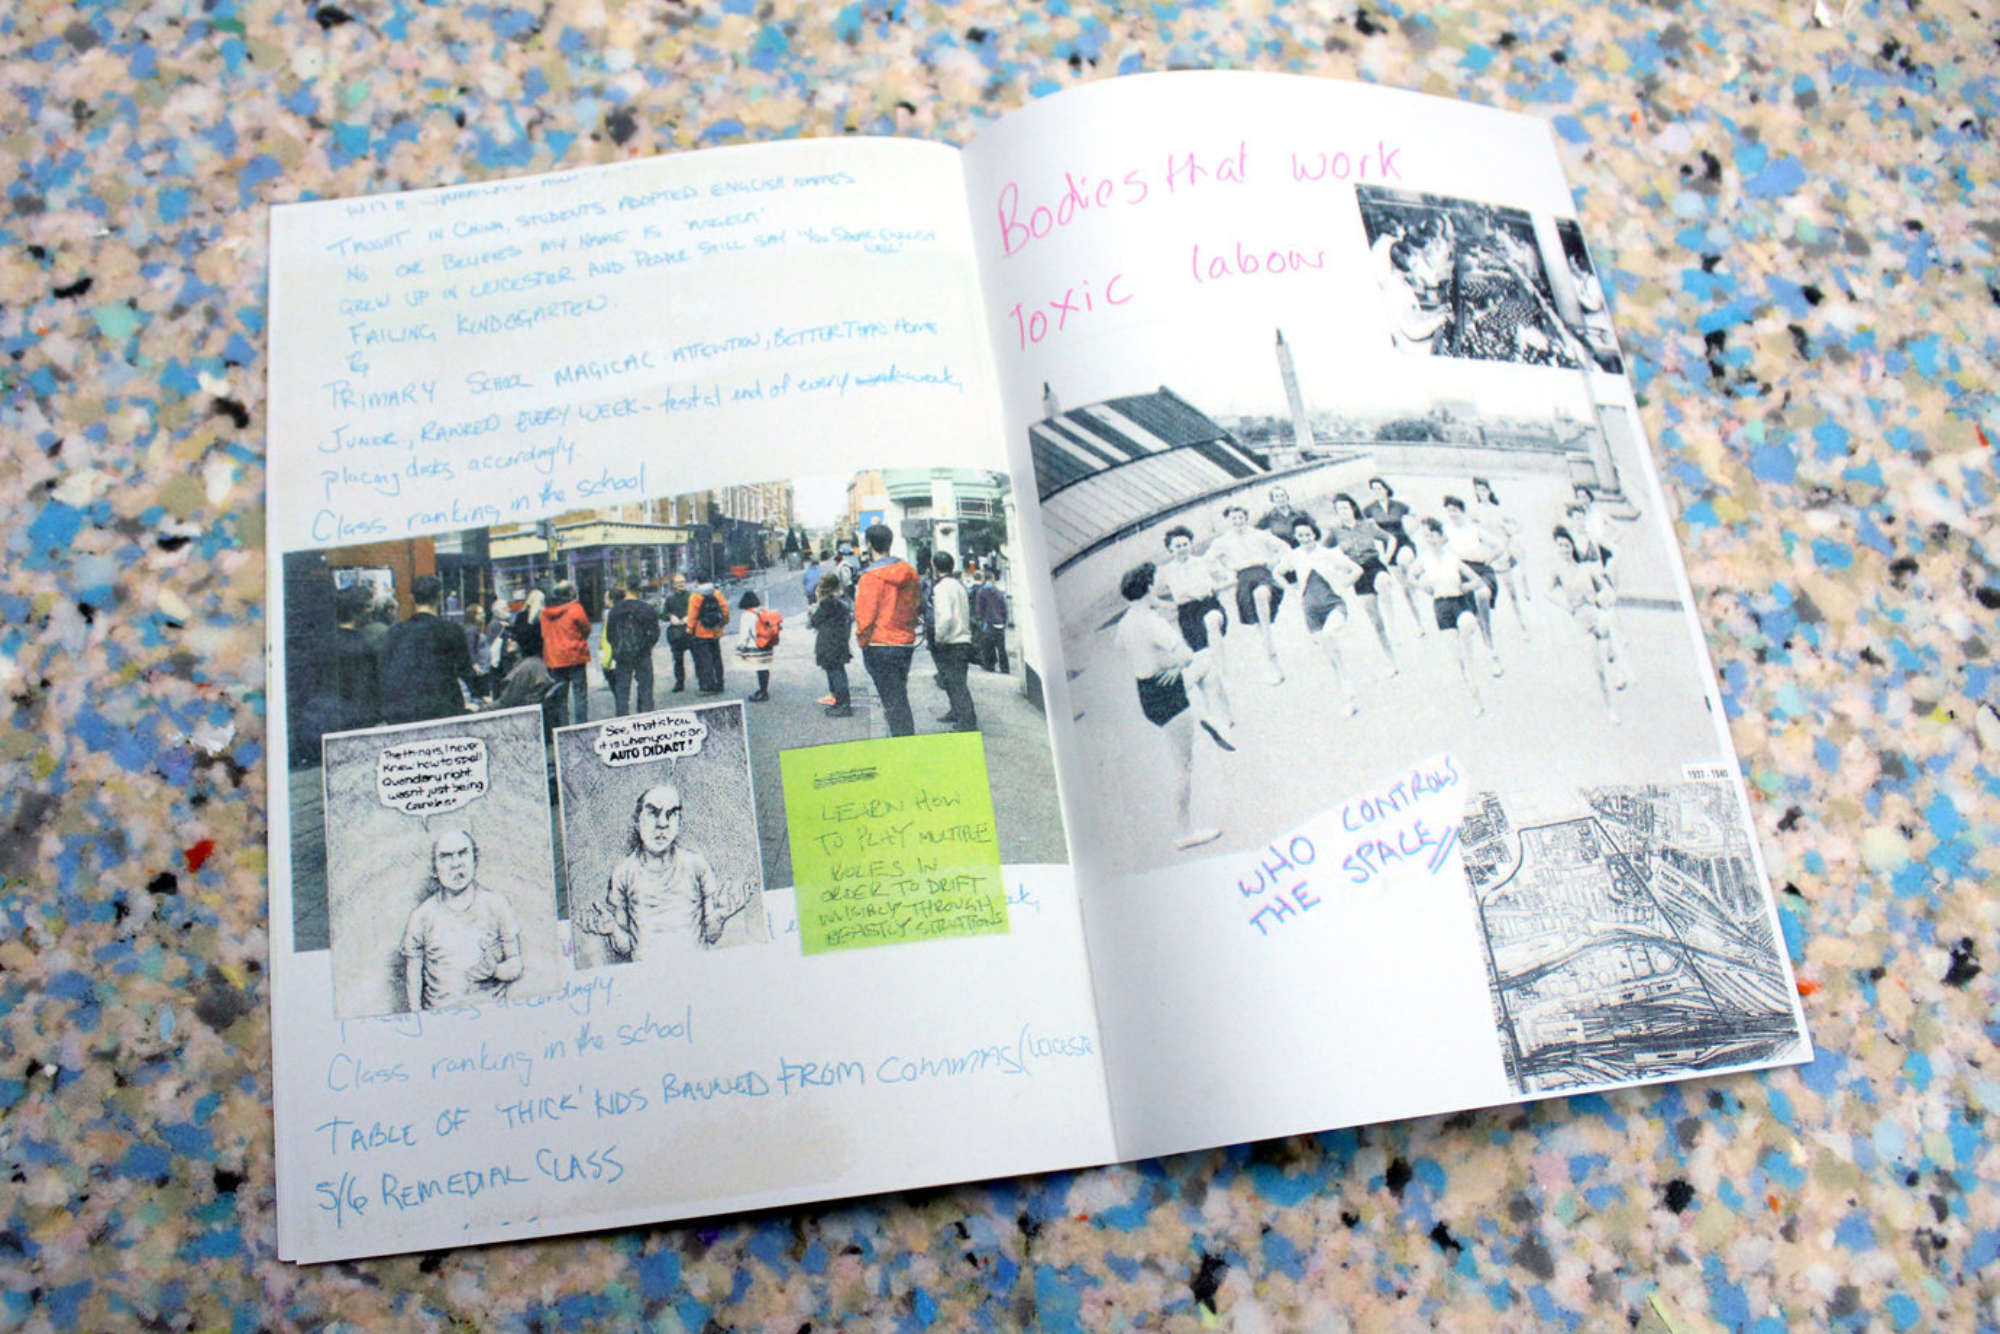 TAUGHT IN CHINA, STUDENTS ADOPTED ENGLISH NAMES
NO ONE BELIEVES MY NAME IS 'ANGELA'
GREW UP IN LEICESTER AND PEOPLE STILL SAY 'YOU SPEAK ENGLISH
WELL'
FAILING KINDEGARTEN.
PRIMARY SCHOOL MAGICAL ATTENTION, BETTER THAN HOME
JUNIOR, RANKED EVERY WEEK - test at end of every week,
placing desks accordingly.
Class ranking in the school
The thing is, I never
knew how to spell
Quandary right.
wasn't just being
Careless.
See, that is how
it is when you're an
AUTO DIDACT!
LEARN HOW
TO PLAY MULTIPLE
ROLES IN
ORDER TO DRIFT
INVISIBLY THROUGH
BEASTLY SITUATIONS
accordingly.
Class ranking in the school
TABLE OF 'THICK' KIDS BANNED FROM COMMAS/LEICESTE
5/6 REMEDIAL CLASS
Bodies that work
Toxic labour
1937 - 1940
WHO CONTROLS
THE SPACE